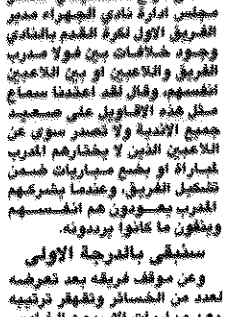 مجلس ادارة نادي الجهراء مدير
الفريق الاول لكرة القدم بالنادي
وجود خلافات بين فولا مدرب
الفريق واللاعبين او بين اللاعبين
انفسهم، وقال لقد اعتدنا سماع
مثل هذه الاقاويل على صعيد
جميع الاندية ولا تصدر سوى عن
اللاعبين الذين لا يختارهم المدرب
لمباراة او بضع مباريات ضمن
تشكيل الفريق، وعندما يشركهم
المدرب يعودون هم انفسهم
وينفون ما كانوا يرددونه.
سنبقى بالدرجة الاولى
وعن موقف فريقه بعد تعرضه
لعدد من الخسائر وتقهقر ترتيبه
بعد مباريات